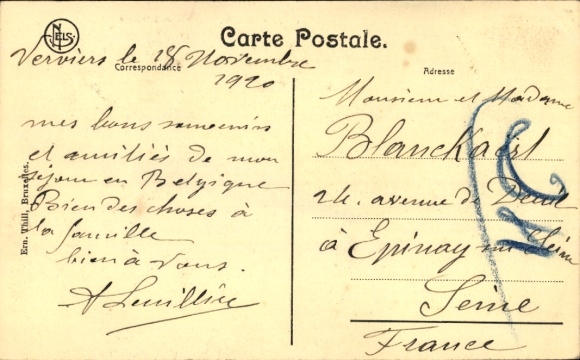 NELS
Carte Postale.
Correspondance
Adresse
Verviers le 18 Novembre
1920
mes bons souvenirs
et amitiés de mon
séjour en Belgique
Bien des choses à
la famille
bien à vous.
Ern. Thill, Bruxelles.
Monsieur et Madame
Blanckaert
24. avenue de Deuil
à Epinay sur Seine
Seine
France